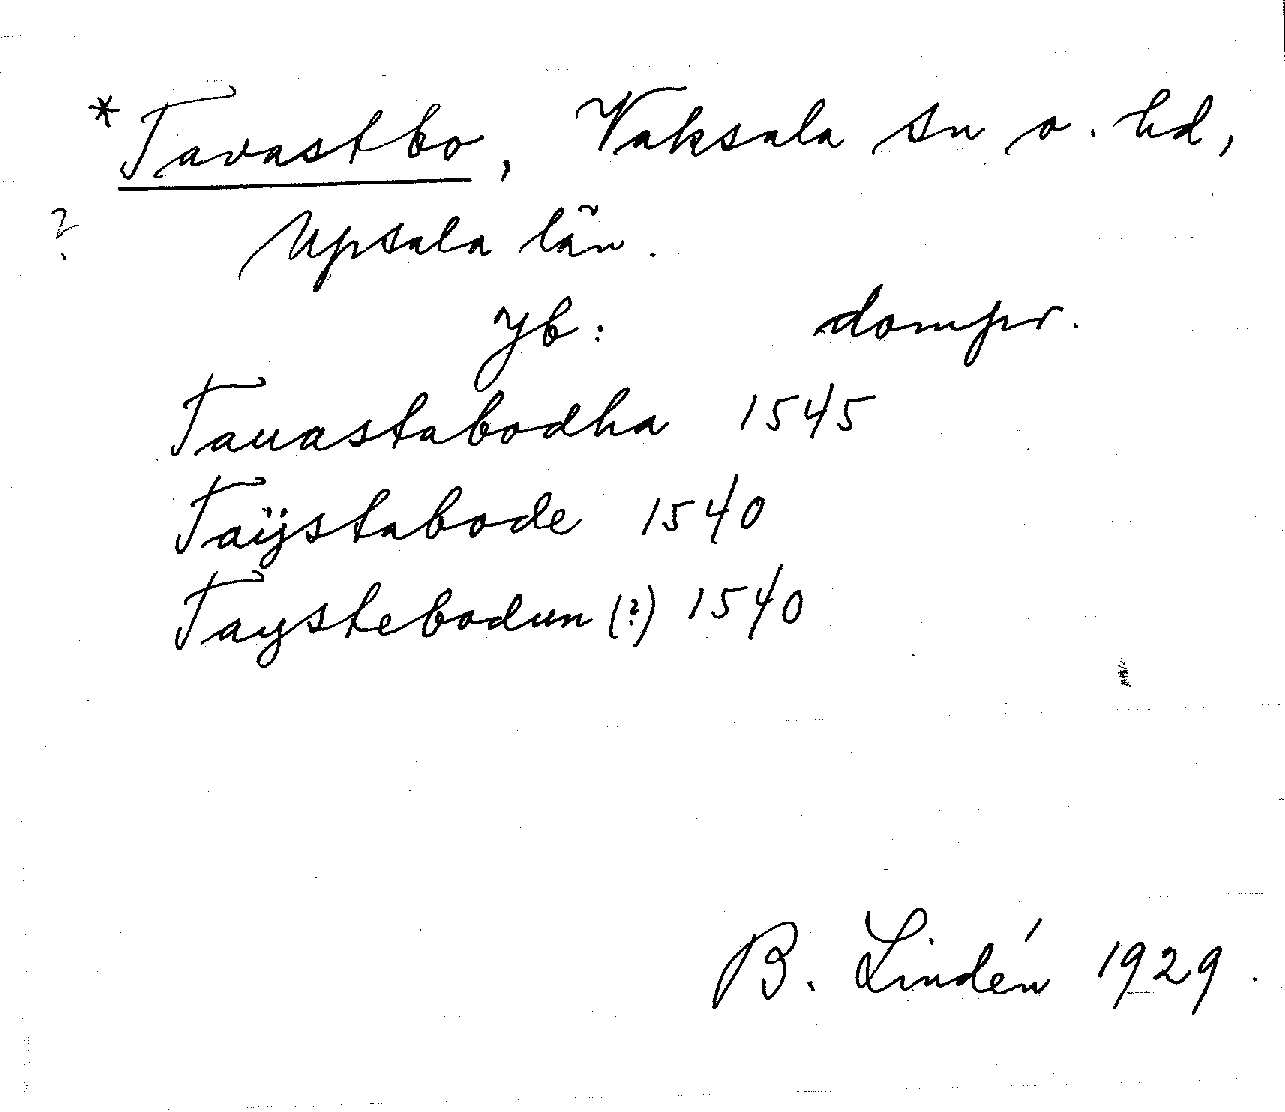 * Tavastbo, Vaksala sn o. hd,
? Upsala län.
Jb: dompr.
Tauastabodha 1545
Taÿstabode 1540
Taystebodum (?) 1540
B. Lindén 1929.